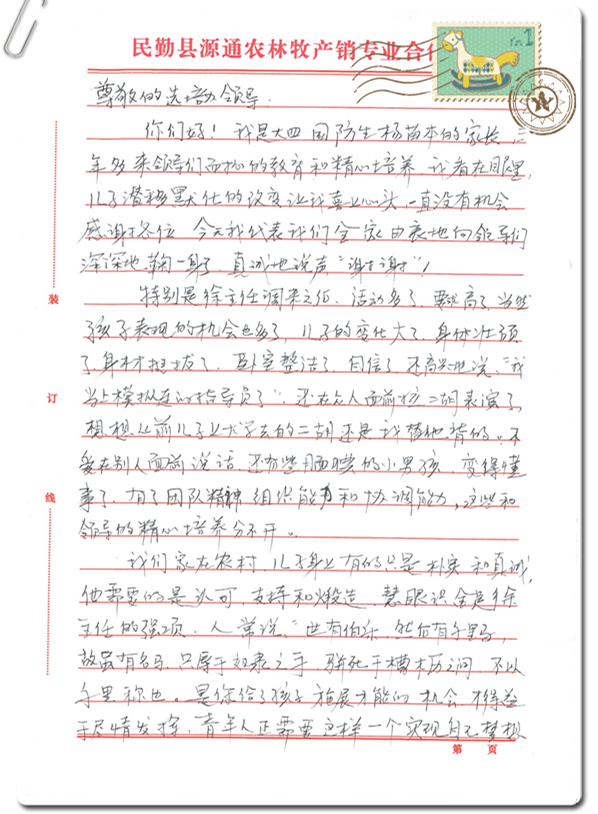 民勤县源通农林牧产销专业合作
尊敬的选培办领导:
你们好！我是大四国防生杨苗本的家长，三
年多来领导们而心的教育和精心培养，我看在眼里，
儿子潜移默化的改变让我喜上心头，一直没有机会
感谢各位，今天我代表我们全家由衷地向领导们
深深地鞠一身了，真诚地说声“谢谢”！
特别是徐主任调来之后，活动多了，要求高了，当然
孩子表现的机会也多了，儿子的变化大了，身体壮硕
了，身材挺拔了，卧室整洁了，自信了，还高兴地说，“我
当上模拟连的指导员了”，还在众人面前拉二胡表演了，
想想从前儿子上大学去的二胡还是我替他背的，不
爱在别人面前说话，还有些腼腆的小男孩，变得懂
事了，有了团队精神，组织能力和协调能力，这些和
领导的精心培养分不开。
我们家在农村，儿子身上有的只是朴实和真诚，
他需要的是认可，支持和煅造，慧眼识金是徐
主任的强项，人常说，“世有伯乐，然后有千里马，
故虽有名马，只辱于奴隶之手，骈死于槽枥之间，不以
千里称也。是你给了孩子施展才能的机会，才得益
于尽情发挥，青年人正需要这样一个实现自己梦想
装
订
线
第 页
1